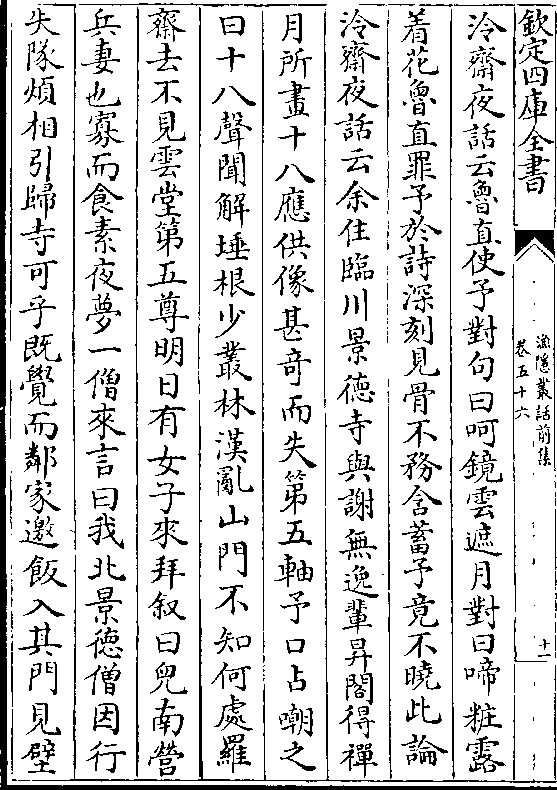 欽定四庫全書
漁隱叢話前集
卷五十六
十一
泠齋夜話云魯直使予對句曰呵鏡雲遮月對曰啼粧露
着花魯直罪予於詩深刻見骨不務含蓄予竟不曉此論
泠齋夜話云余住臨川景德寺與謝無逸輩昇閣得禪
月所畫十八應供像甚奇而失第五軸予口占嘲之
曰十八聲聞解埵根少叢林漢亂山門不知何處羅
齋去不見雲堂第五尊明日有女子來拜叙曰兒南營
兵妻也寡而食素夜夢一僧來言曰我北景德僧因行
失隊煩相引歸寺可乎既覺而鄰家邀飯入其門見壁